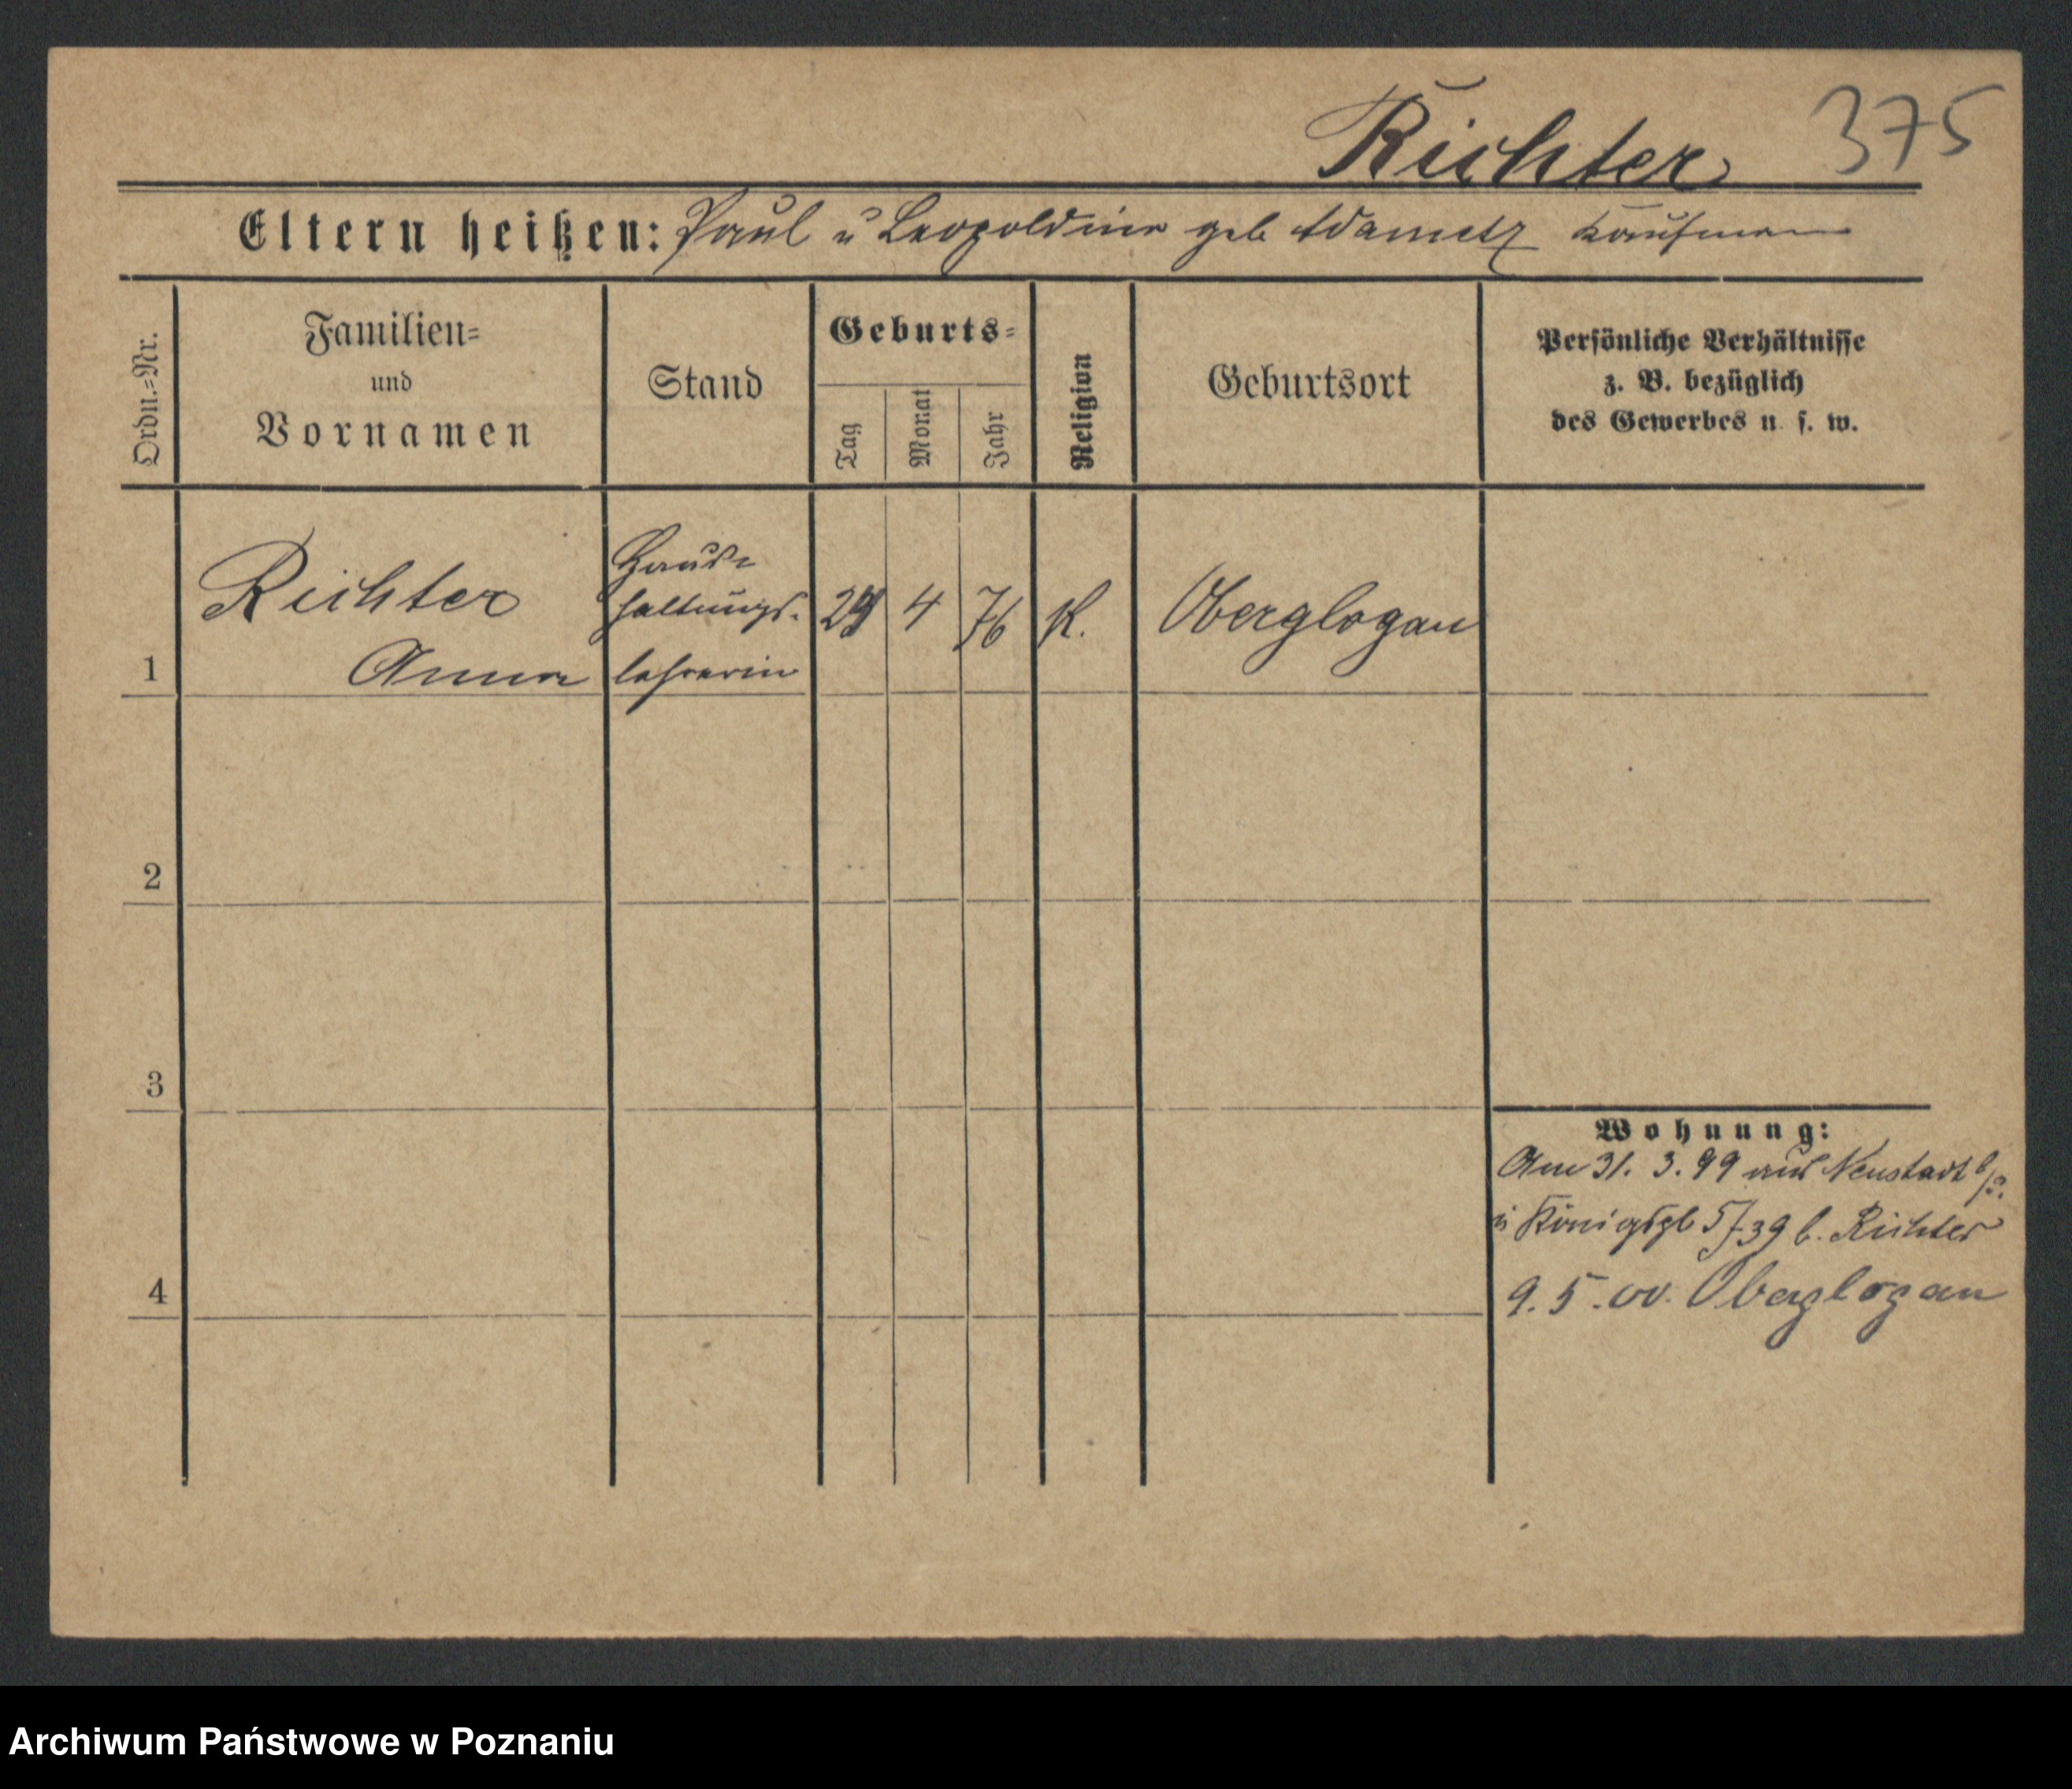 Richter 375
Eltern heißen: Paul u Leopoldine geb Adametz Kaufmann
Ordn.=Nr.
Familien=
und
Vornamen
Stand
Geburts=
Tag
Monat
Jahr
Religion
Geburtsort
Persönliche Verhältnisse
z. B. bezüglich
des Gewerbes u. s. w.
1
Richter
Anna
Haus=
haltungs-
lehrerin
4
76
K.
Oberglogau
2
3
4
Wohnung:
Am 31. 3. 99 aus Neustadt
Königspl 5/39 b. Richter
9. 5. 00. Oberglogau
Archiwum Państwowe w Poznaniu